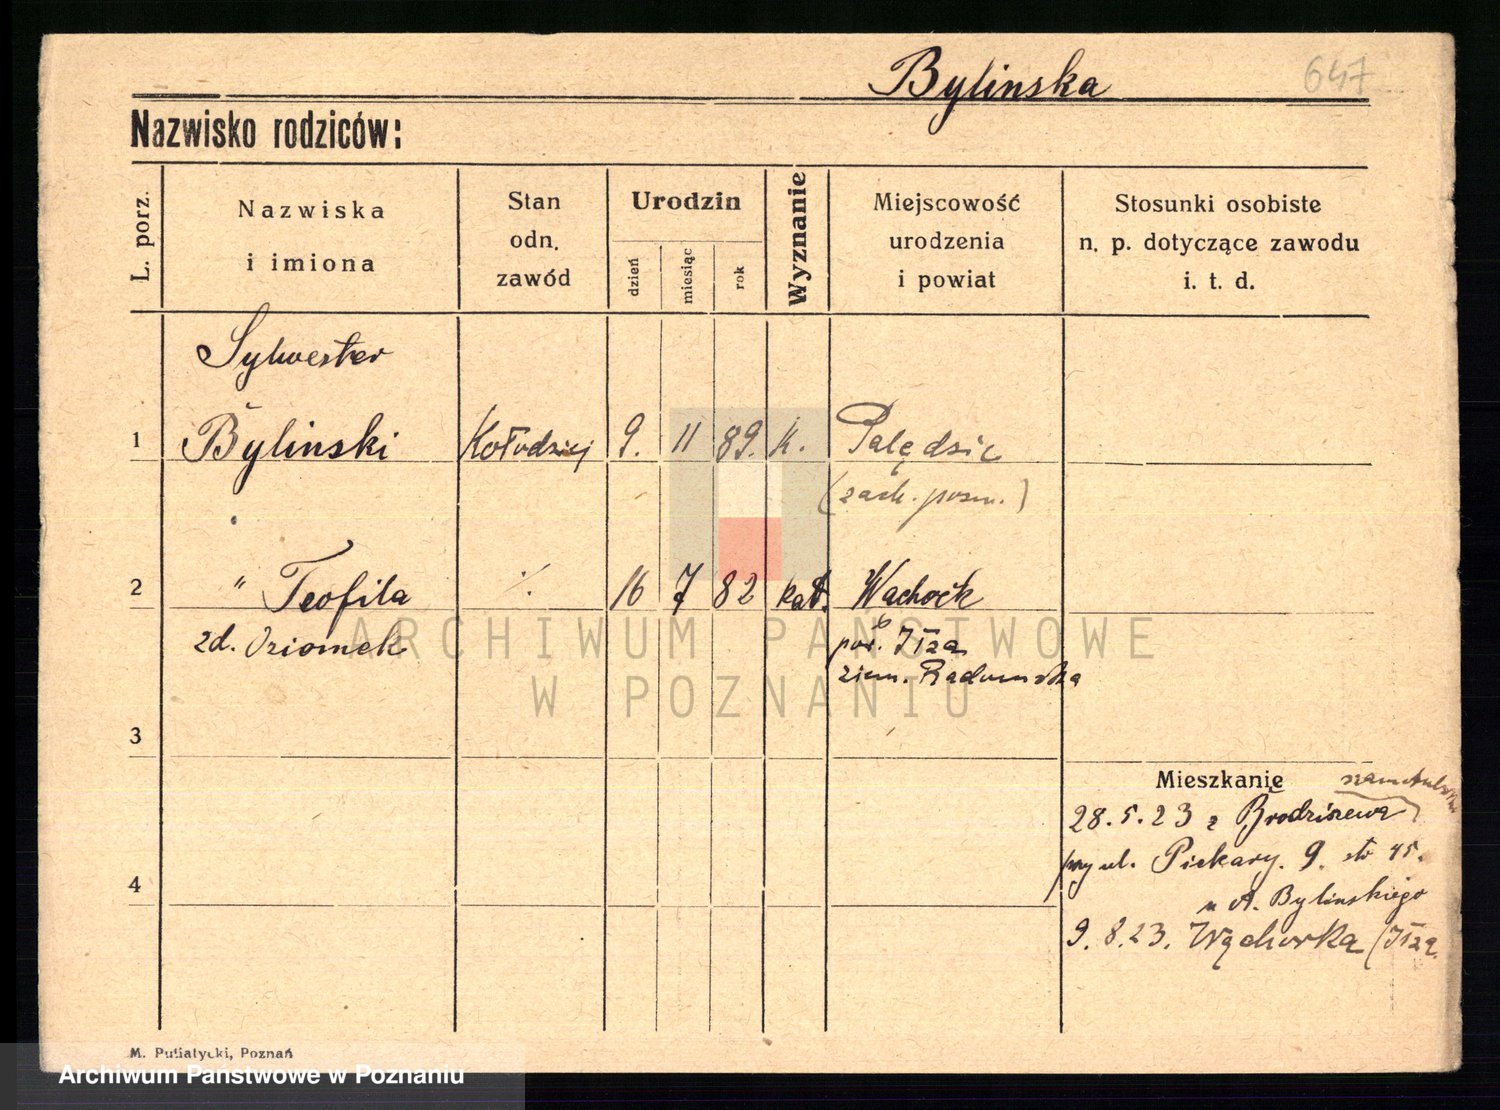 Bylinska
647
Nazwisko rodziców:
L. porz.
Nazwiska
i imiona
Stan
odn.
zawód
Urodzin
dzień
miesiąc
rok
Wyznanie
Miejscowość
urodzenia
i powiat
Stosunki osobiste
n. p. dotyczące zawodu
i. t. d.
Sylwester
1 Bylinski Kołodziej 9. 11 89. k. Palędzie
(zach. pozn.)
2 " Teofila ·/. 16 7 82 kat. Wachock
zd. Oziomek pow. Iłża
ziem. Radomska
3
Mieszkanie
szamotulski
28.5.23 z Brodziszewa
przy ul. Piekary. 9. 45.
u A. Bylinskiego
4
9.8.23. Wąchocka (Iłża
M. Putiatycki, Poznań
ARCHIWUM PAŃSTWOWE
W POZNANIU
Archiwum Państwowe w Poznaniu